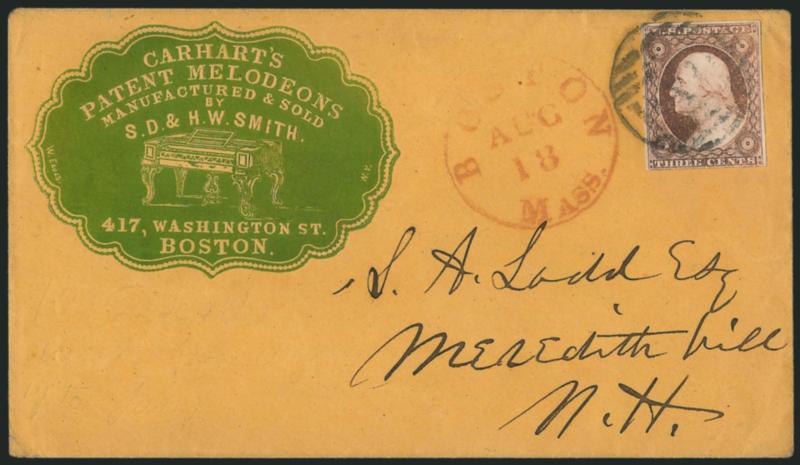 CARHART'S
PATENT MELODEONS
MANUFACTURED & SOLD
BY
S.D. & H.W. SMITH.
417, WASHINGTON ST.
BOSTON.
BOSTON
AUG
18
MASS.
U.S. POSTAGE
THREE CENTS
S. A. Ladd Esq
Meredith Vill
N.H.